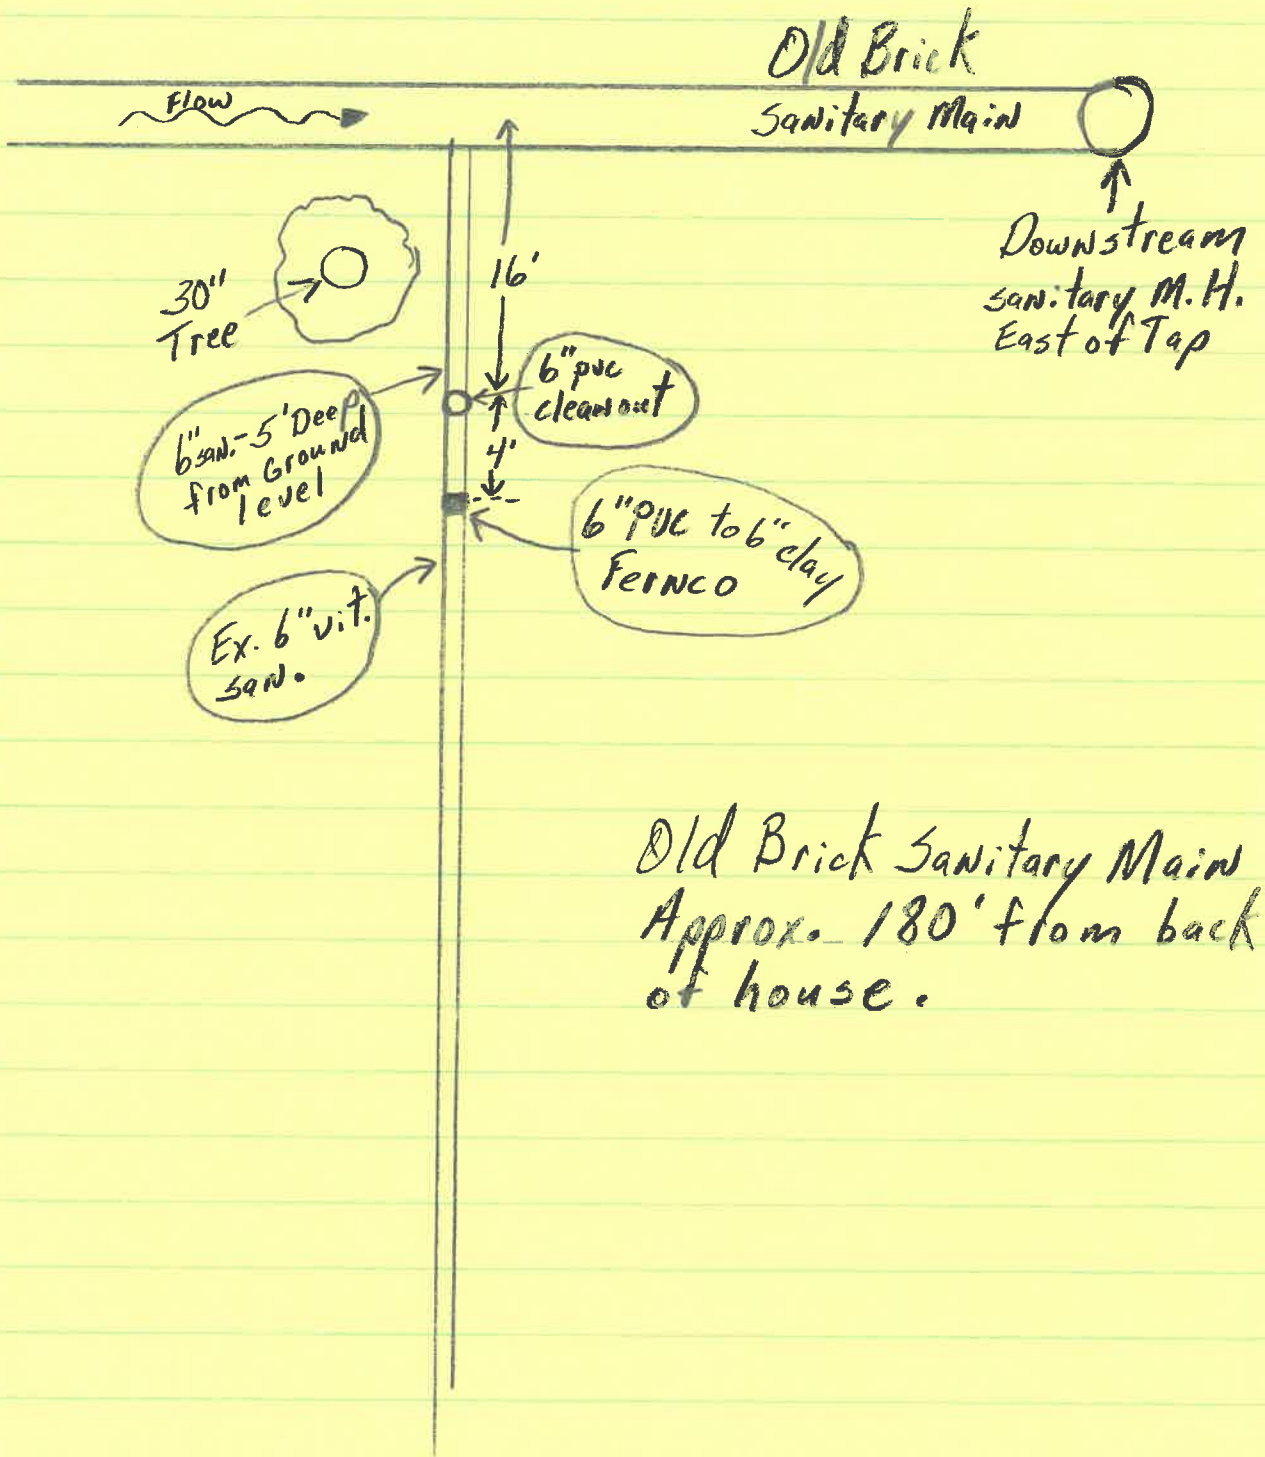 Old Brick
Sanitary Main
Flow
Downstream
sanitary M.H.
East of Tap
30"
Tree
16'
6" pvc
cleanout
6" san. - 5' Deep
from Ground
level
4'
6" PVC to 6" clay
Fernco
Ex. 6" vit.
san.
Old Brick Sanitary Main
Approx. 180' from back
of house.